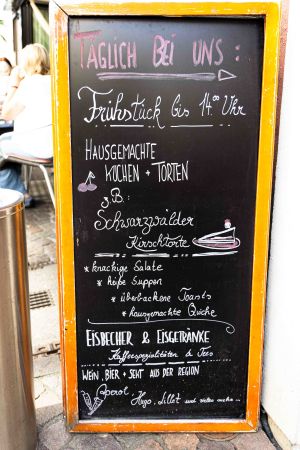 TÄGLICH BEI UNS:
Frühstück bis 14.00 Uhr
HAUSGEMACHTE
KUCHEN + TORTEN
z.B:
Schwarzwälder
Kirschtorte
* knackige Salate
* heiße Suppen
* überbackene Toasts
* hausgemachte Quiche
EISBECHER & EISGETRÄNKE
Kaffeespezialitäten & Tees
WEIN, BIER + SEKT AUS DER REGION
Aperol, Hugo, Lillet und vieles mehr...